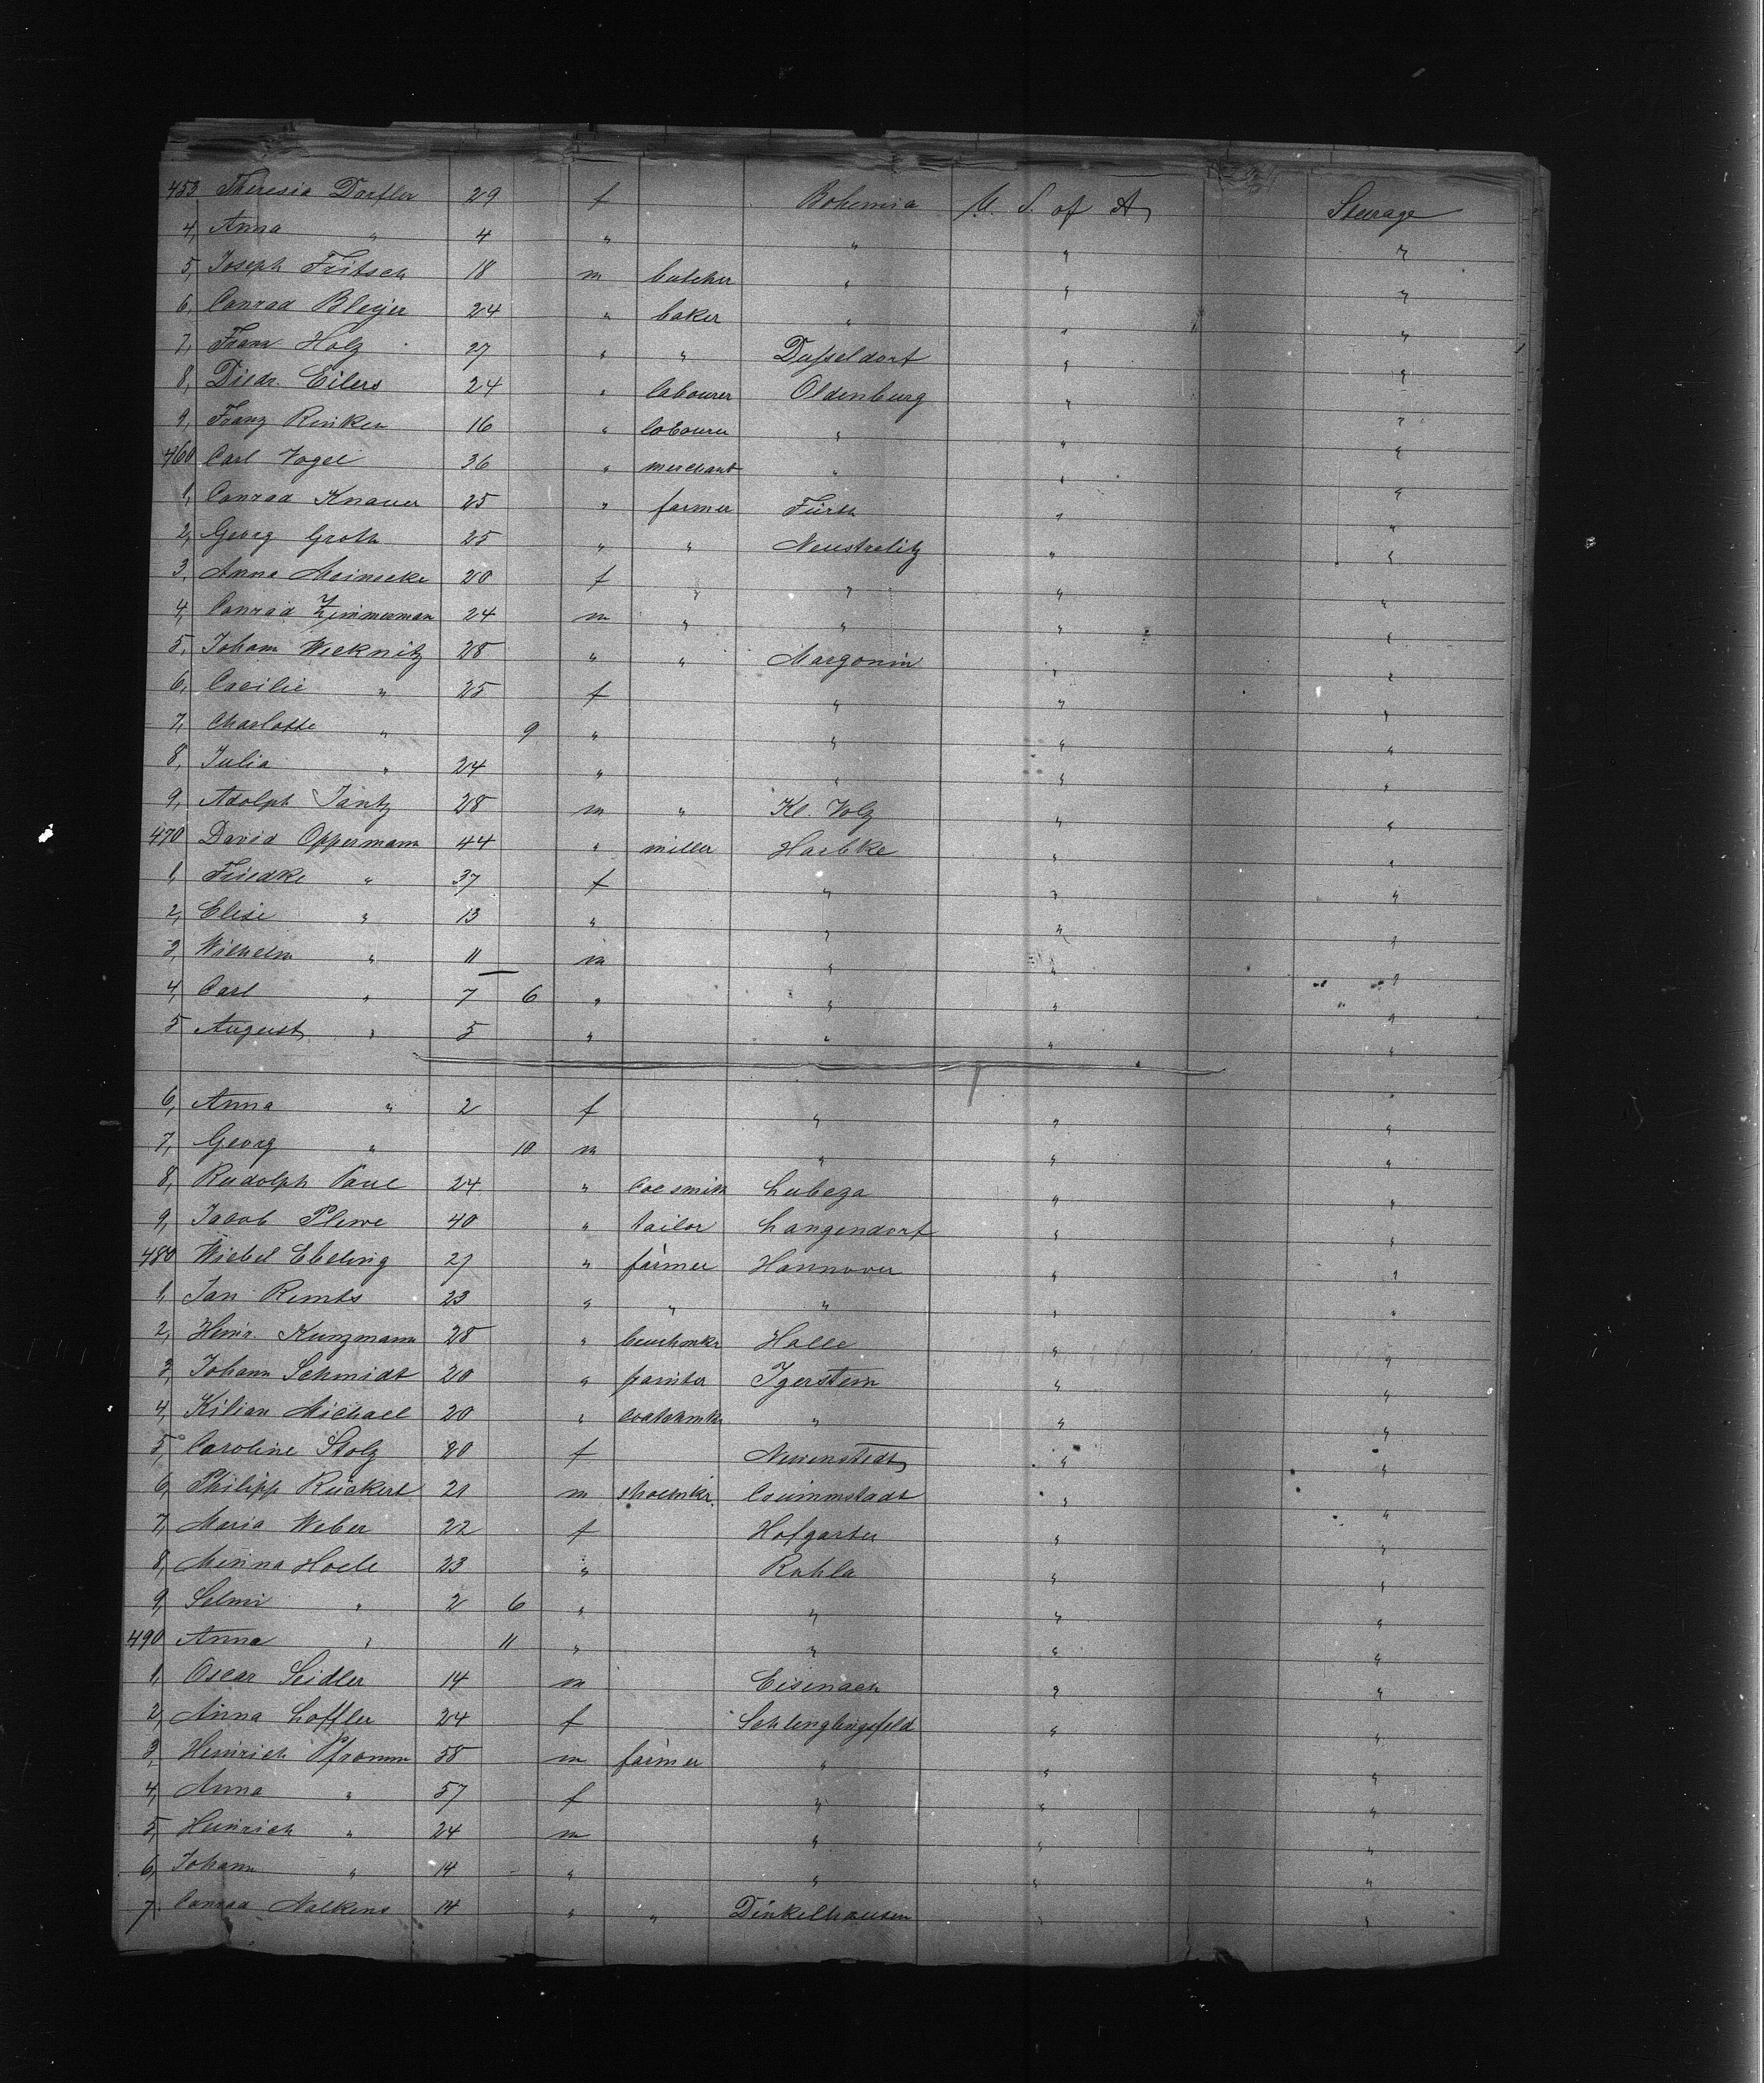 453 Theresia Dorfler 29 f Bohemia U. S. of A. Steerage
4, Anna " 4 " " " "
5, Joseph Fritsch 18 m butcher " " "
6, Conrad Bleyer 24 " baker " " "
7, Franz Holz 27 " " Dusseldorf " "
8, Diedr. Eilers 24 " labourer Oldenburg " "
9, Franz Rinken 16 " labourer " " "
460 Carl Vogel 36 " merchant " " "
1, Conrad Knauer 25 " farmer Fürth " "
2, Georg Groth 25 " " Neustrelitz " "
3, Anna Meinecke 20 f " " " "
4, Conrad Zimmerman 24 m " " " "
5, Johann Wecknitz 28 " " Margonin " "
6, Cacilie " 25 f " " "
7, Charlotte " 9 " " " "
8, Julia " 24 " " " "
9, Adolph Jantz 28 m " Kl. Volz " "
470 David Oppermann 44 " miller Harbke " "
1, Friedke " 37 f " " "
2, Elise " 13 " " " "
3, Wilhelm " 11 m " " "
4, Carl " 7 6 " " " "
5 August " 5 " " " "
6, Anna " 2 f " " "
7, Georg " 10 m " " "
8, Rudolph Paul 24 " Lubeza " "
9, Jacob Plewe 40 " tailor Langendorf " "
480 Wiebel Ebeling 27 " farmer Hannover " "
1, Jan Remts 23 " " " " "
2, Heinr. Kunzmann 28 " Halle " "
3, Johann Schmidt 20 " painter Igerstein " "
4, Kilian Michael 20 " " " "
5, Caroline Stolz 20 f Neuenstedt " "
6, Philipp Rückert 21 m shoemkr. " "
7, Maria Weber 22 f Hofgarten " "
8, Minna Hoele 23 " Ruhla " "
9, Selmi " 2 6 " " " "
490 Anna " 11 " " " "
1, Oscar Seidler 14 m Eisenach " "
2, Anna Loffler 24 f " "
3, Heinrich Pfromm 58 m farmer " " "
4, Anna " 57 f " " "
5, Heinrich " 24 m " " "
6, Johann " 14 " " " "
7. Conrad Nolkens 14 " " Dinkelhausen " "